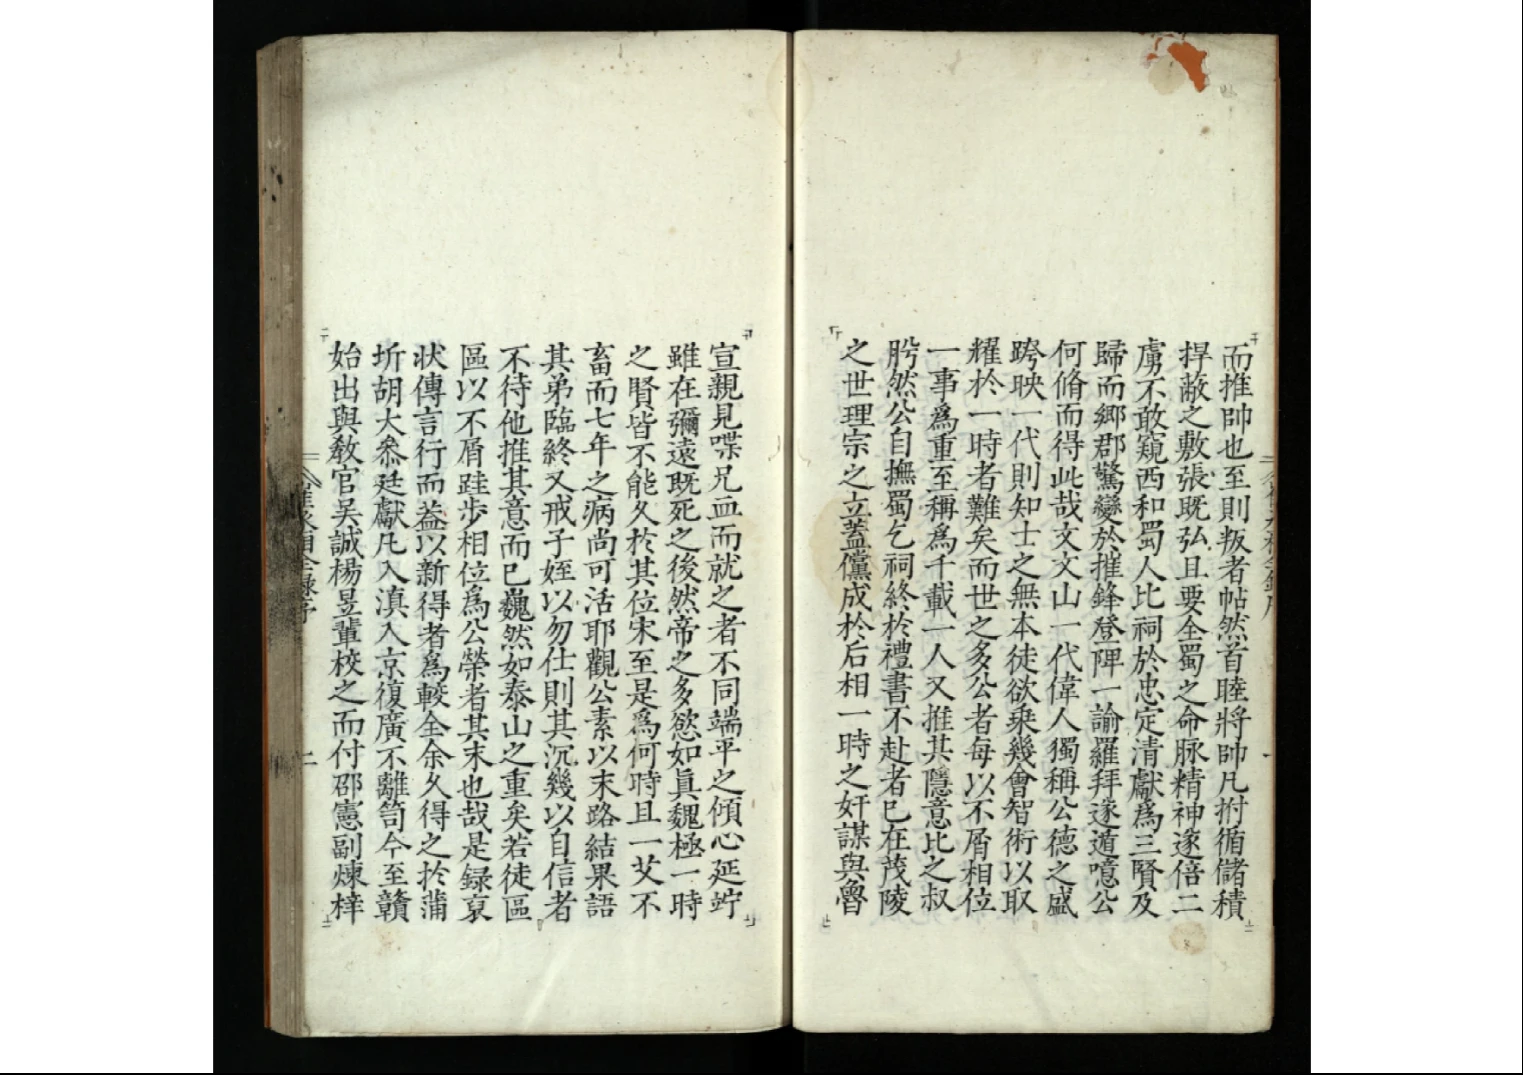 而推帥也至則叛者帖然首睦將帥凡拊循儲積
捍蔽之敷張既弘且要全蜀之命脉精神遂倍二
虜不敢窺西和蜀人比祠於忠定清獻爲三賢及
歸而鄉郡驚變於摧鋒登陴一諭羅拜遂遁噫公
何脩而得此哉文文山一代偉人獨稱公德之盛
跨映一代則知士之無本徒欲乘幾會智術以取
耀於一時者難矣而世之多公者每以不屑相位
一事爲重至稱爲千載一人又推其隱意比之叔
肸然公自撫蜀乞祠終於禮書不赴者已在茂陵
之世理宗之立蓋儻成於后相一時之奸謀與魯
宣親見喋兄血而就之者不同端平之傾心延竚
雖在彌遠既死之後然帝之多慾如眞魏極一時
之賢皆不能久於其位宋至是爲何時且一艾不
畜而七年之病尚可活耶觀公素以末路結果語
其弟臨終又戒子姪以勿仕則其沉幾以自信者
不待他推其意而已巍然如泰山之重矣若徒區
區以不屑跬步相位爲公榮者其末也哉是録裒
狀傳言行而益以新得者爲較全余久得之於蒲
圻胡大叅廷獻凡入滇入京復廣不離笥今至贛
始出與教官吴誠楊昱輩校之而付邵憲副煉梓